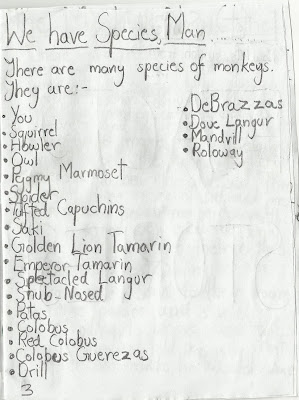 We have Species, Man.......
There are many species of monkeys.
They are:-
• You
• Squirrel
• Howler
• Owl
• Pegmy Marmoset
• Spider
• Tufted Capuchins
• Saki
• Golden Lion Tamarin
• Emperor Tamarin
• Spectacled Langur
• Snub-Nosed
• Patas
• Colobus
• Red Colobus
• Colobus Guerezas
• Drill
• DeBrazzas
• Douc Langur
• Mandrill
• Roloway
3